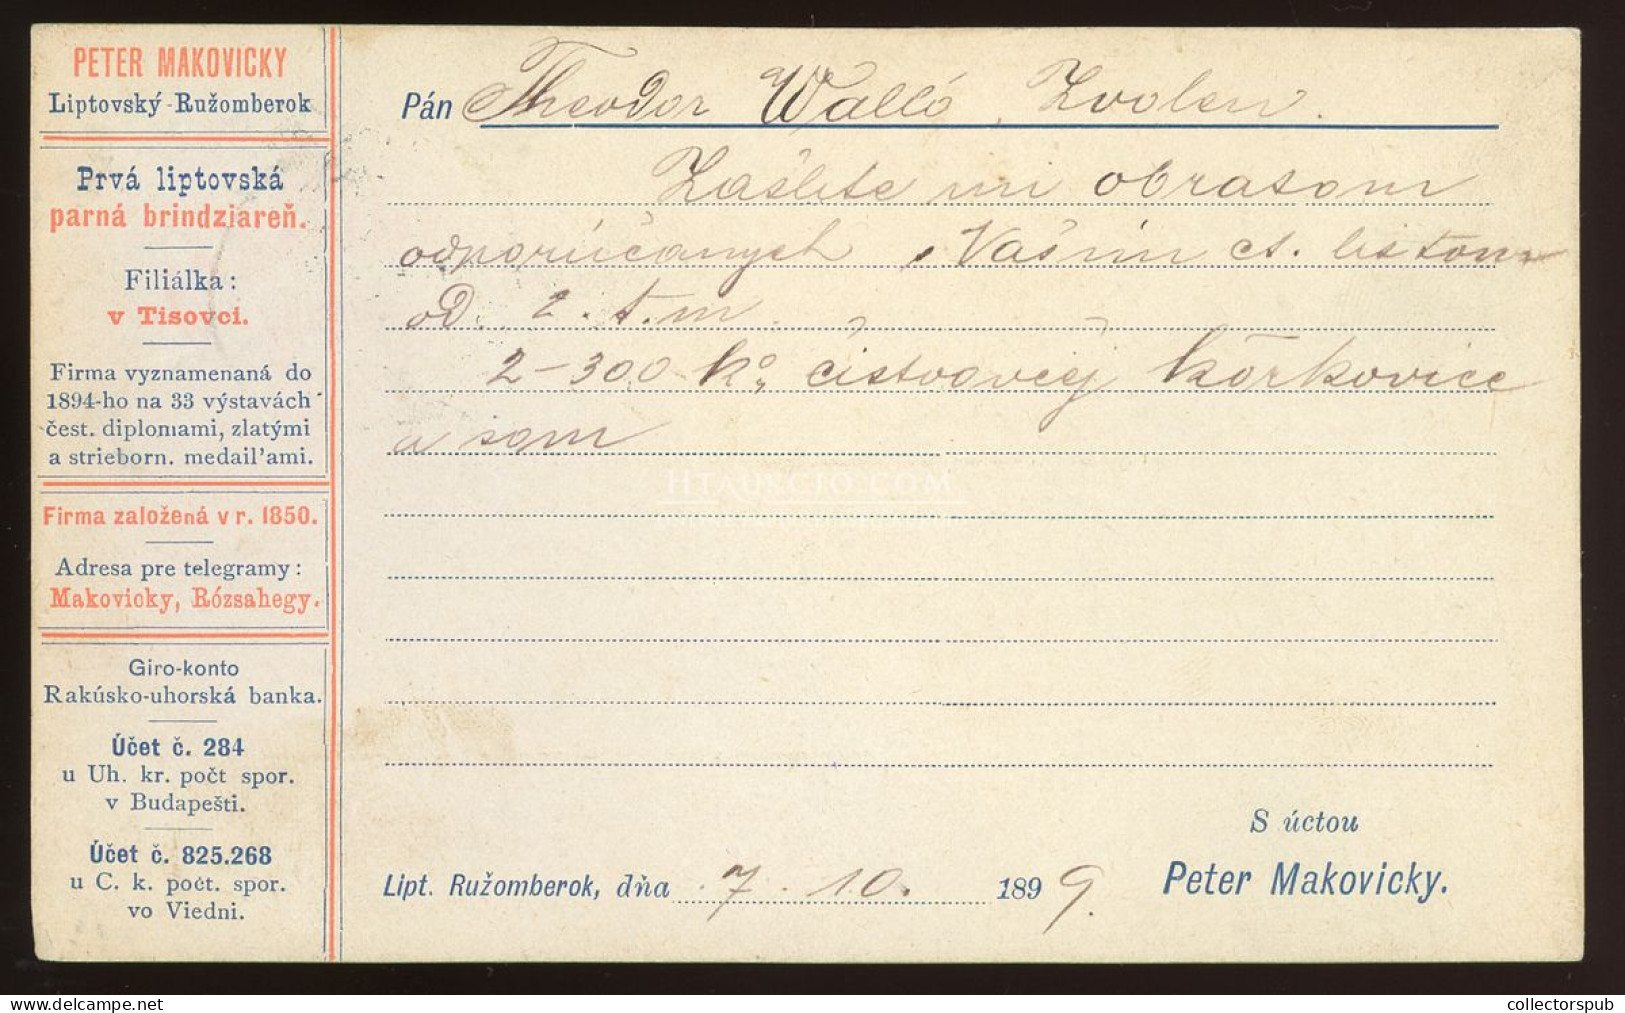 PETER MAKOVICKY
Liptovský-Ružomberok
Prvá liptovská
parná brindziareň.
Filiálka:
v Tisovci.
Firma vyznamenaná do
1894-ho na 33 výstavách
čest. diplomami, zlatými
a strieborn. medail'ami.
Firma založená v r. 1850.
Adresa pre telegramy:
Makovicky, Rózsahegy.
Giro-konto
Rakúsko-uhorská banka.
Účet č. 284
u Uh. kr. počt spor.
v Budapešti.
Účet č. 825.268
u C. k. počt. spor.
vo Viedni.
Pán Theodor Walló, Zvolen.
Zašlite mi obratom
odporúčaných Vaším ct. listom
od. 2. t. m.
2-300 ko čistvovej
a som
HTAUKCIO.COM
S úctou
Lipt. Ružomberok, dňa 7. 10. 1899. Peter Makovicky.
www.delcampe.net
collectorspub